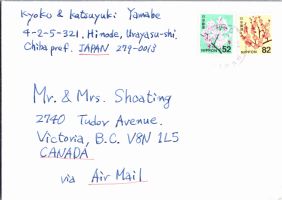 Kyoko & Katsuyuki Yamabe
4-2-5-321, Hinode, Urayasu-shi.
Chiba pref. JAPAN 279-0013
NIPPON 52
NIPPON 82
Mr. & Mrs. Shoating
2740 Tudor Avenue.
Victoria, B.C. V8N 1L5
CANADA
via Air Mail